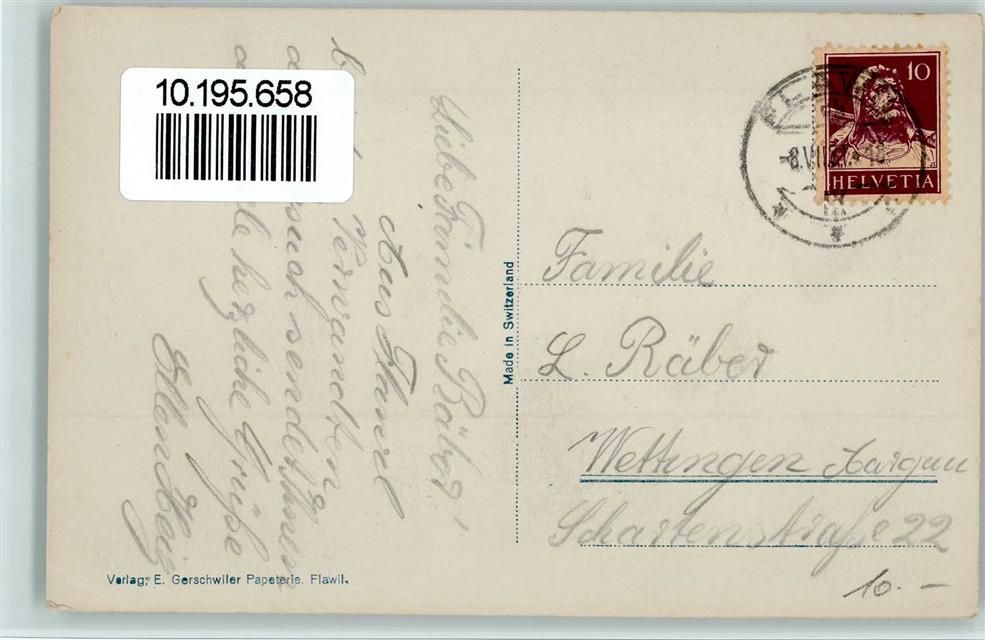 10.195.658
10
HELVETIA
Liebe Familie Räber!
Aus Flawil
Verwandten
sendet Ihnen
herzliche Grüße
Made in Switzerland
Familie
L. Räber
Wettingen Aargau
Schartenstraße 22
10.-
Verlag: E. Gerschwiler Papeterie. Flawil.